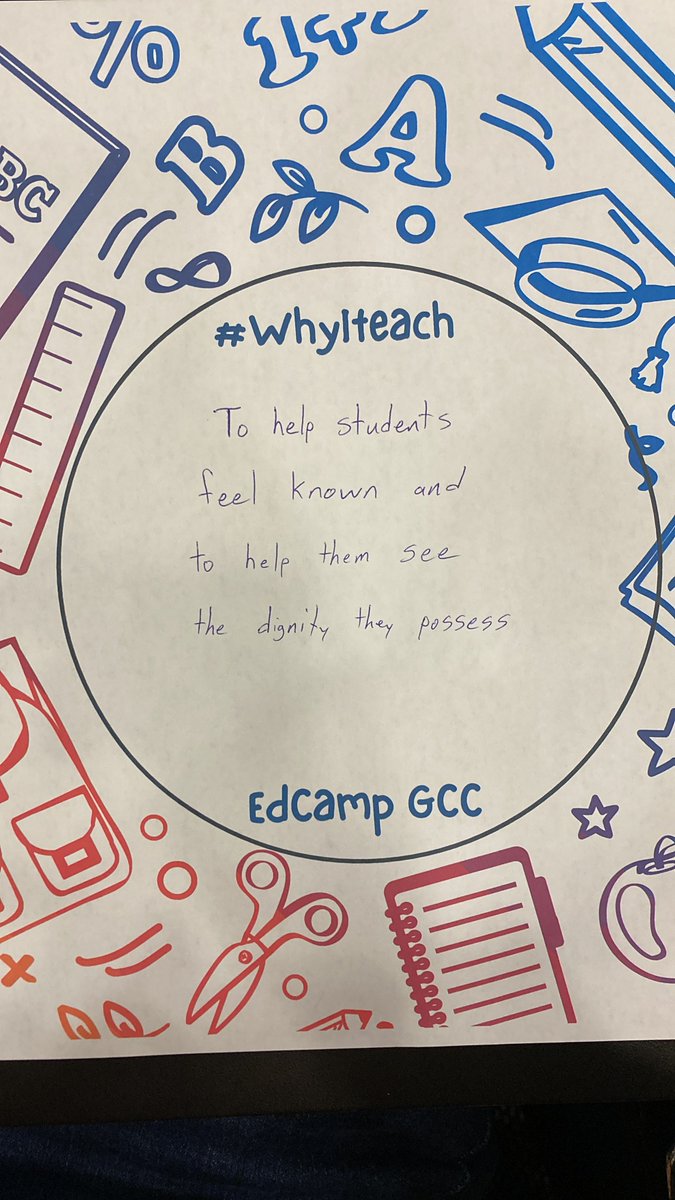 %
B
A
BC
#WhyIteach
To help students
feel known and
to help them see
the dignity they possess
EdCamp GCC